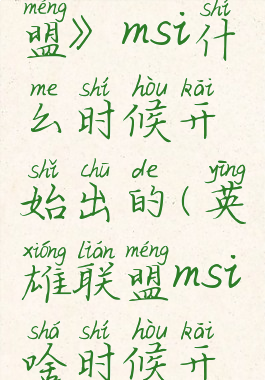 méng shí
盟》msi什
me shí hòu kāi
么时候开
shǐ chū de yīng
始出的(英
xióng lián méng
雄联盟msi
shá shí hòu kāi
啥时候开